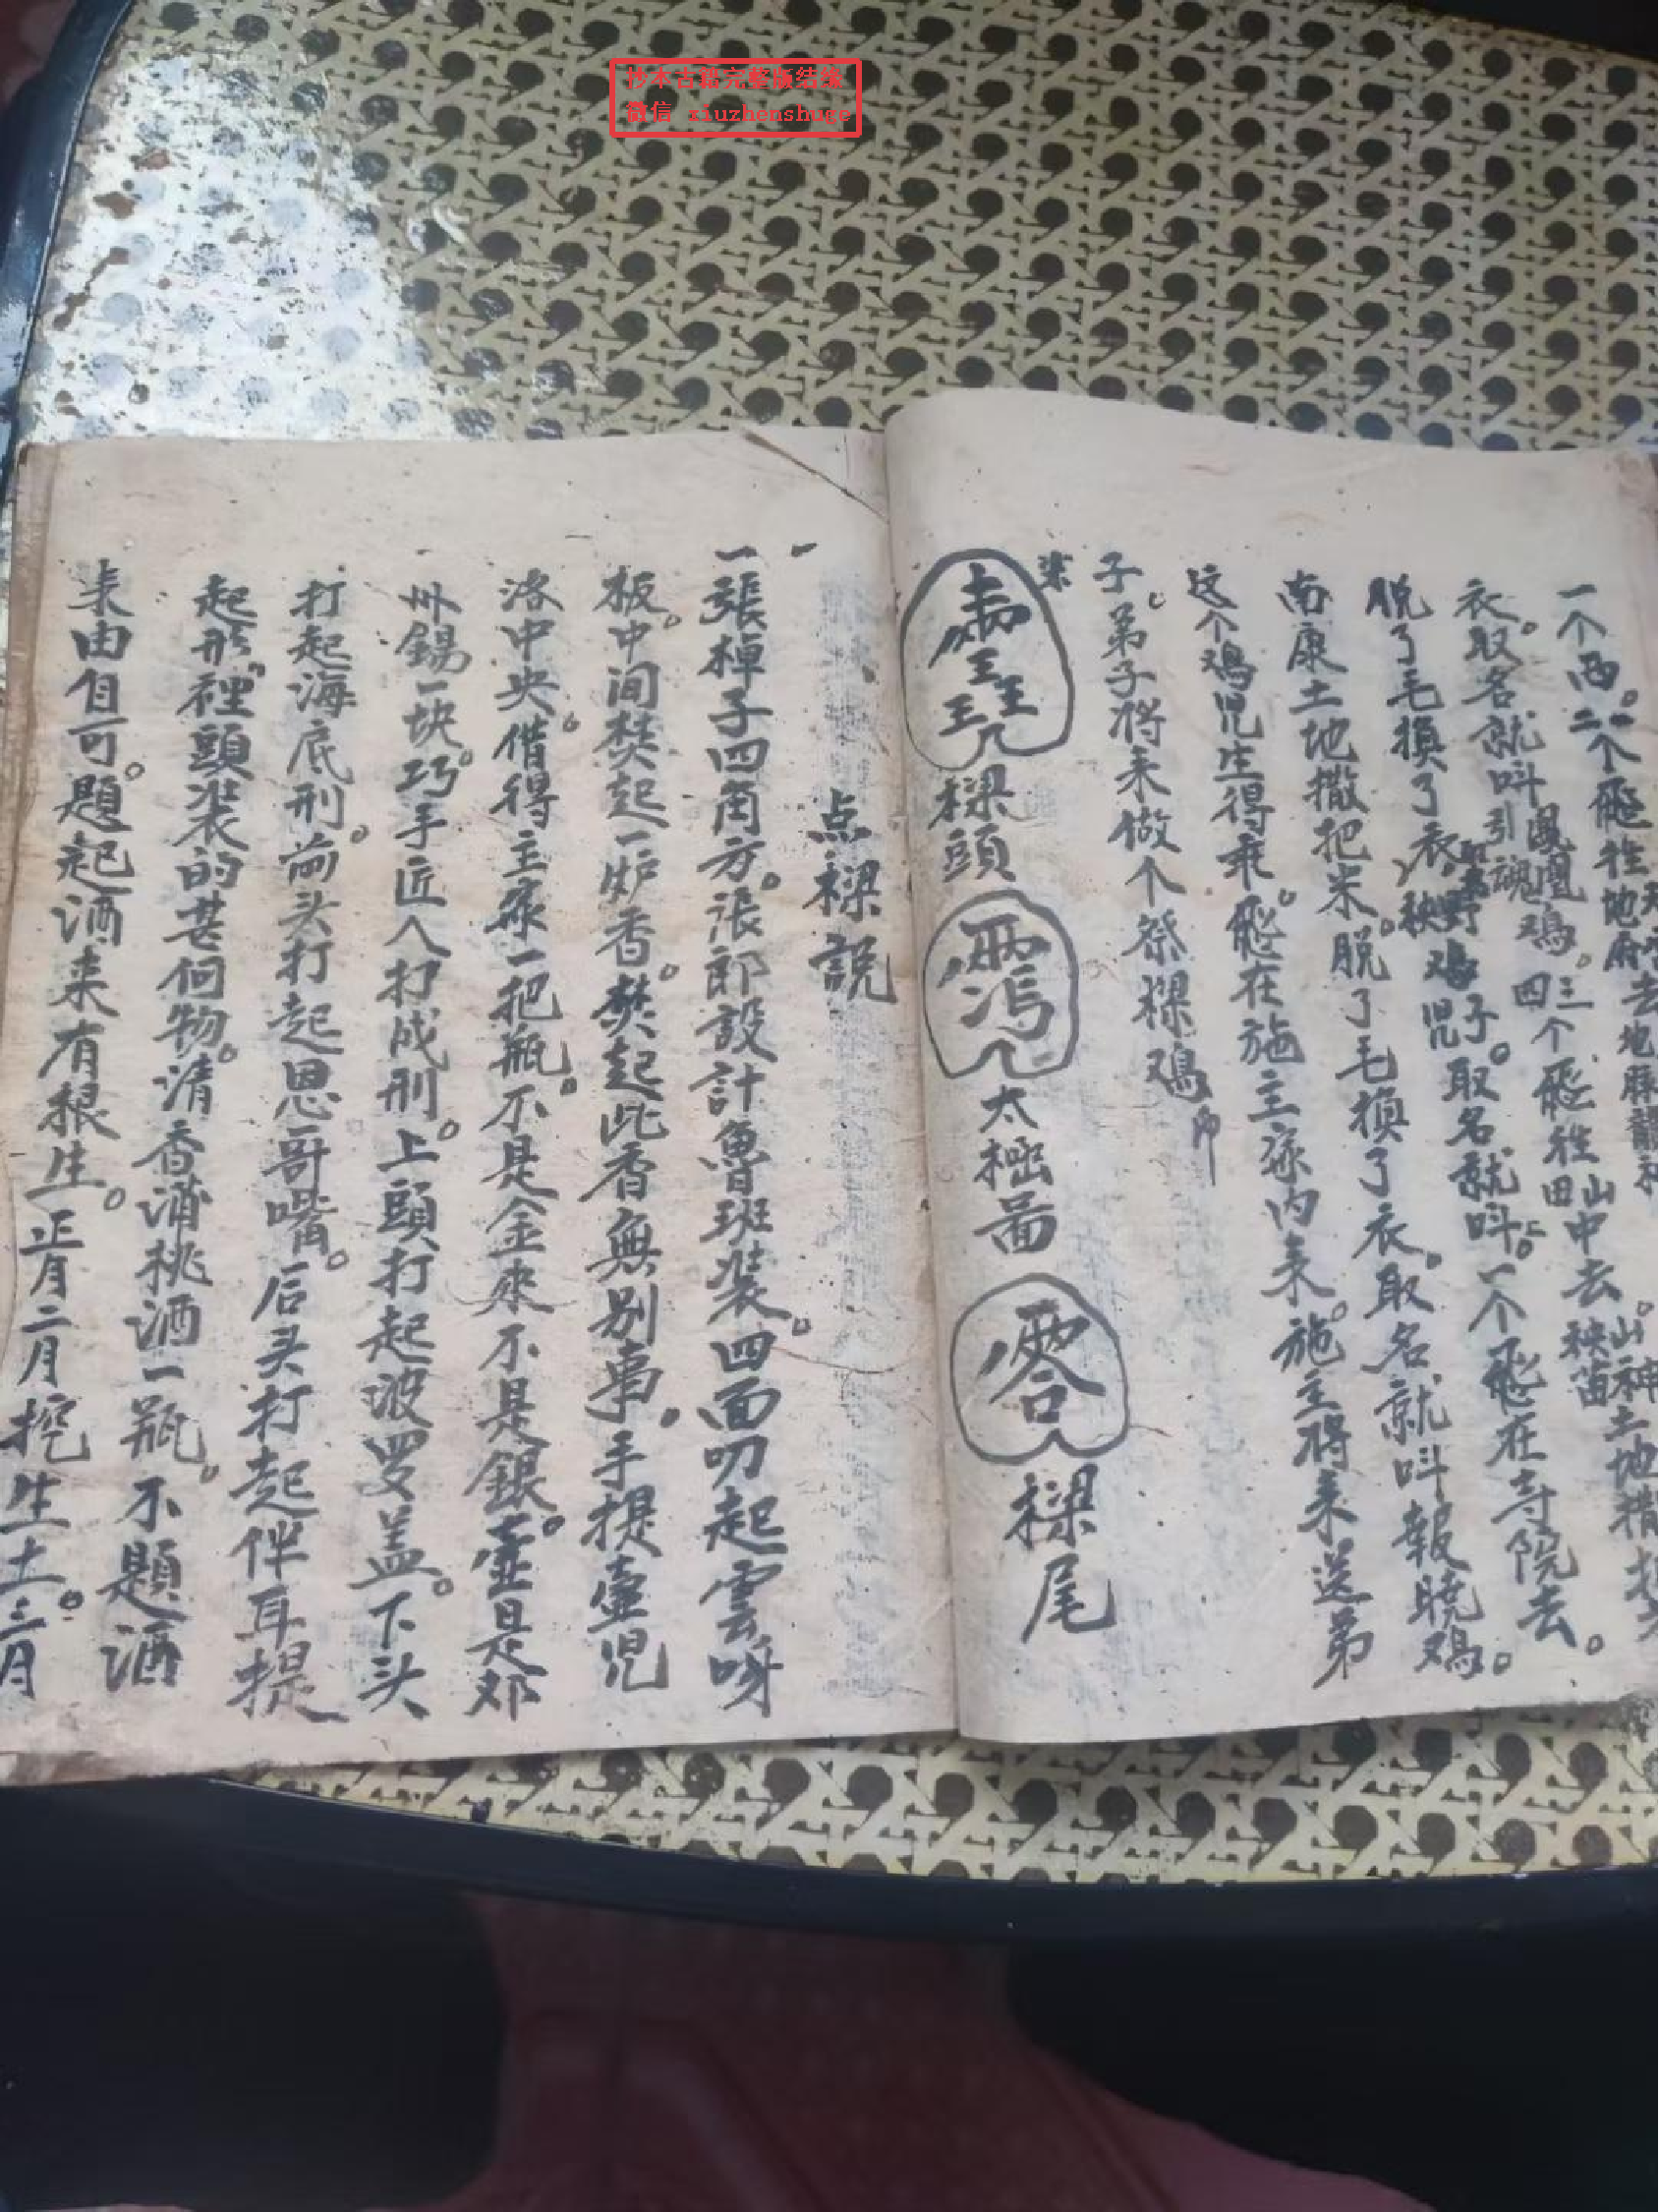 抄本古籍完整版结缘
微信 xiuzhenshuge
一个西。二个飛往地府去
衣。取名就呌引魂鳳凰鳮。四三个飛往山田中去
脱了毛換了衣。秧野鳮児子。取名就呌。一个飛在寺院去。
南康土地撒把米。脱了毛換了衣。取名就呌報曉鳮。
这个鳮児生得乖。飛在施主家内来。施主将来送弟
子。弟子将来做个祭樑鳮
樑頭
太極啚
樑尾
点樑說
一張棹子四角方。張郎設計魯班装。四面叨起雲呀
板。中间焚起一炉香。焚起此香無别事，手提壷児
洛中央。借得主家一把瓶。不是金來不是銀。壷是郑
州錫一块。巧手匠人打成刑。上頭打起波罗盖。下头
打起海底刑。前头打起恩哥嘴。后头打起伴耳提
起形。裡頭装的甚何物。清香浦桃酒一瓶。不題酒
来由自可。題起酒来有根生。正月二月挖生土。三月